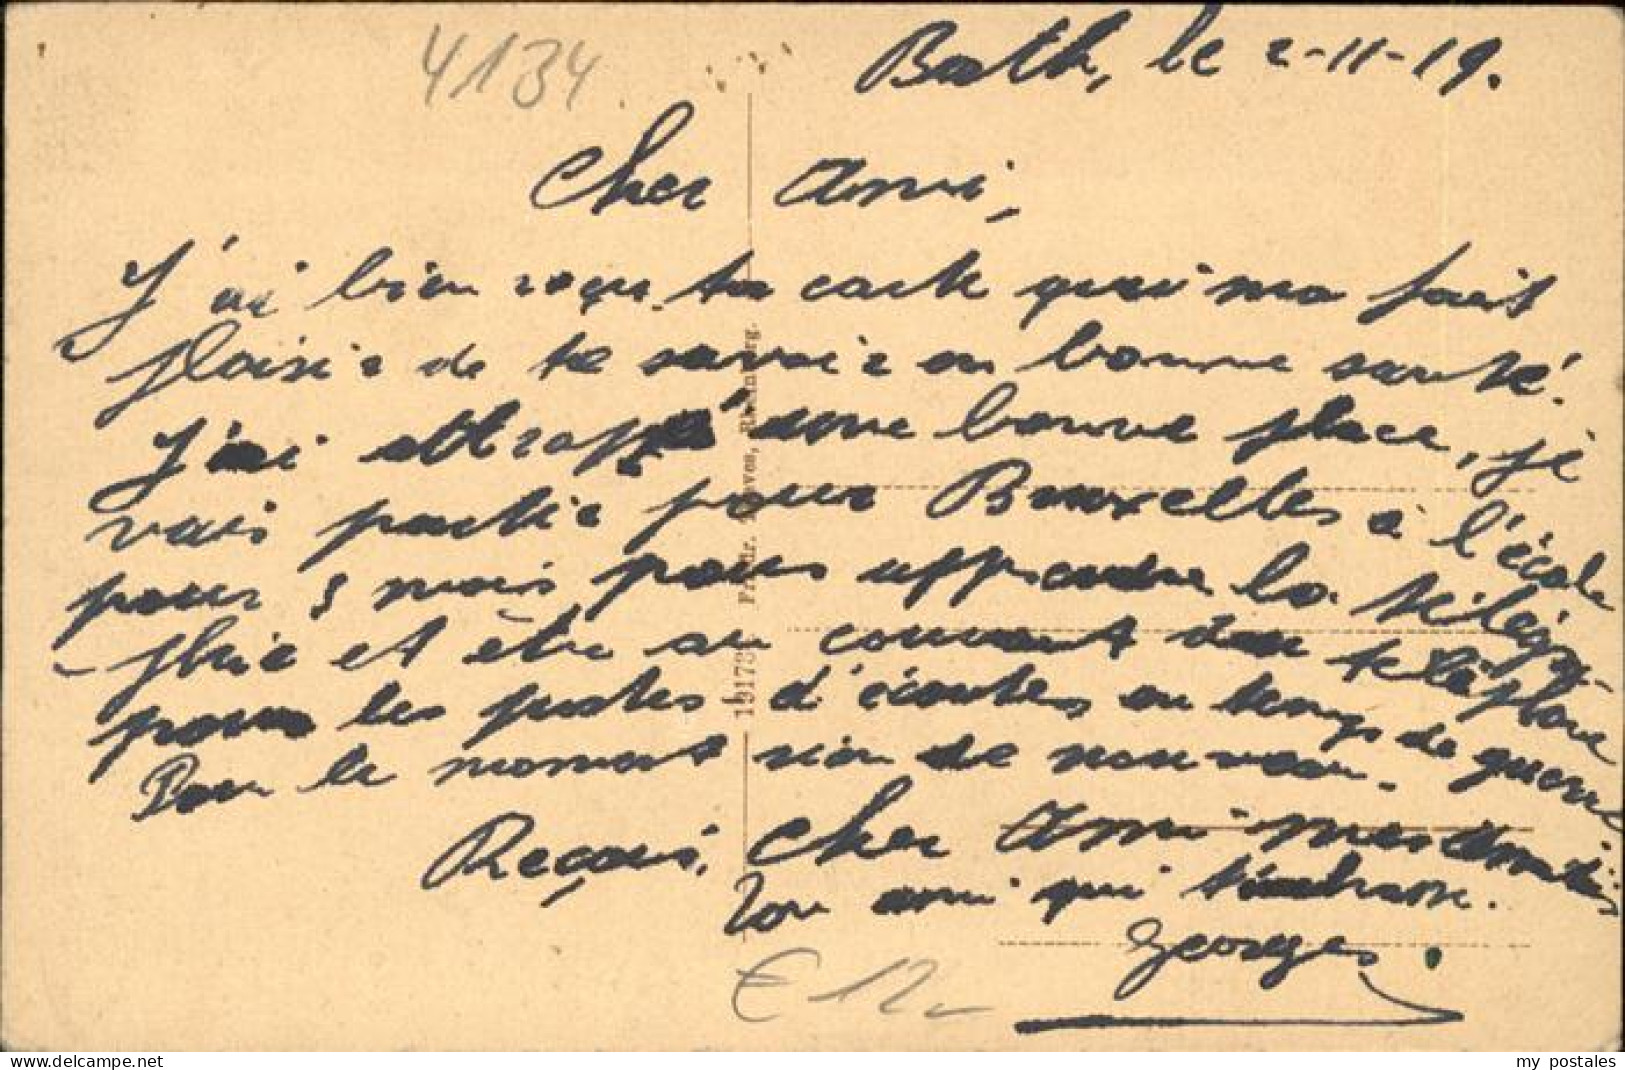 4134
Bath, le 2-11-19.
Cher Ami,
J'ai bien reçu ta carte qui ma fait
plaisir de te savoir en bonne santé.
J'ai attrappé une bonne place, je
vais partir pour Bruxelles à l'école
pour 3 mois pour apprendre la télégra-
phie et être au courant du téléphone
pour les postes d'écoutes en temps de guerre
Pour le moment rien de nouveau.
Reçois, cher Ami mes amitiés
Ton ami qui t'embrasse.
Georges.
€ 12,-
my postales